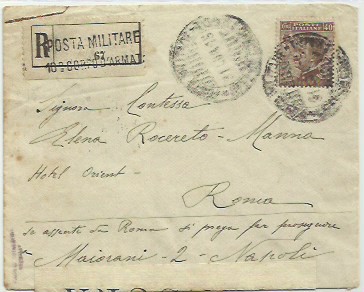 R
POSTA MILITARE
67
10º CORPO D'ARMATA
POSTE
ITALIANE
40
Signora Contessa
Elena Rocereto-Manna
Hotel Orient-
Roma
se assente da Roma si prega far proseguire
a Maiorani-2-Napoli